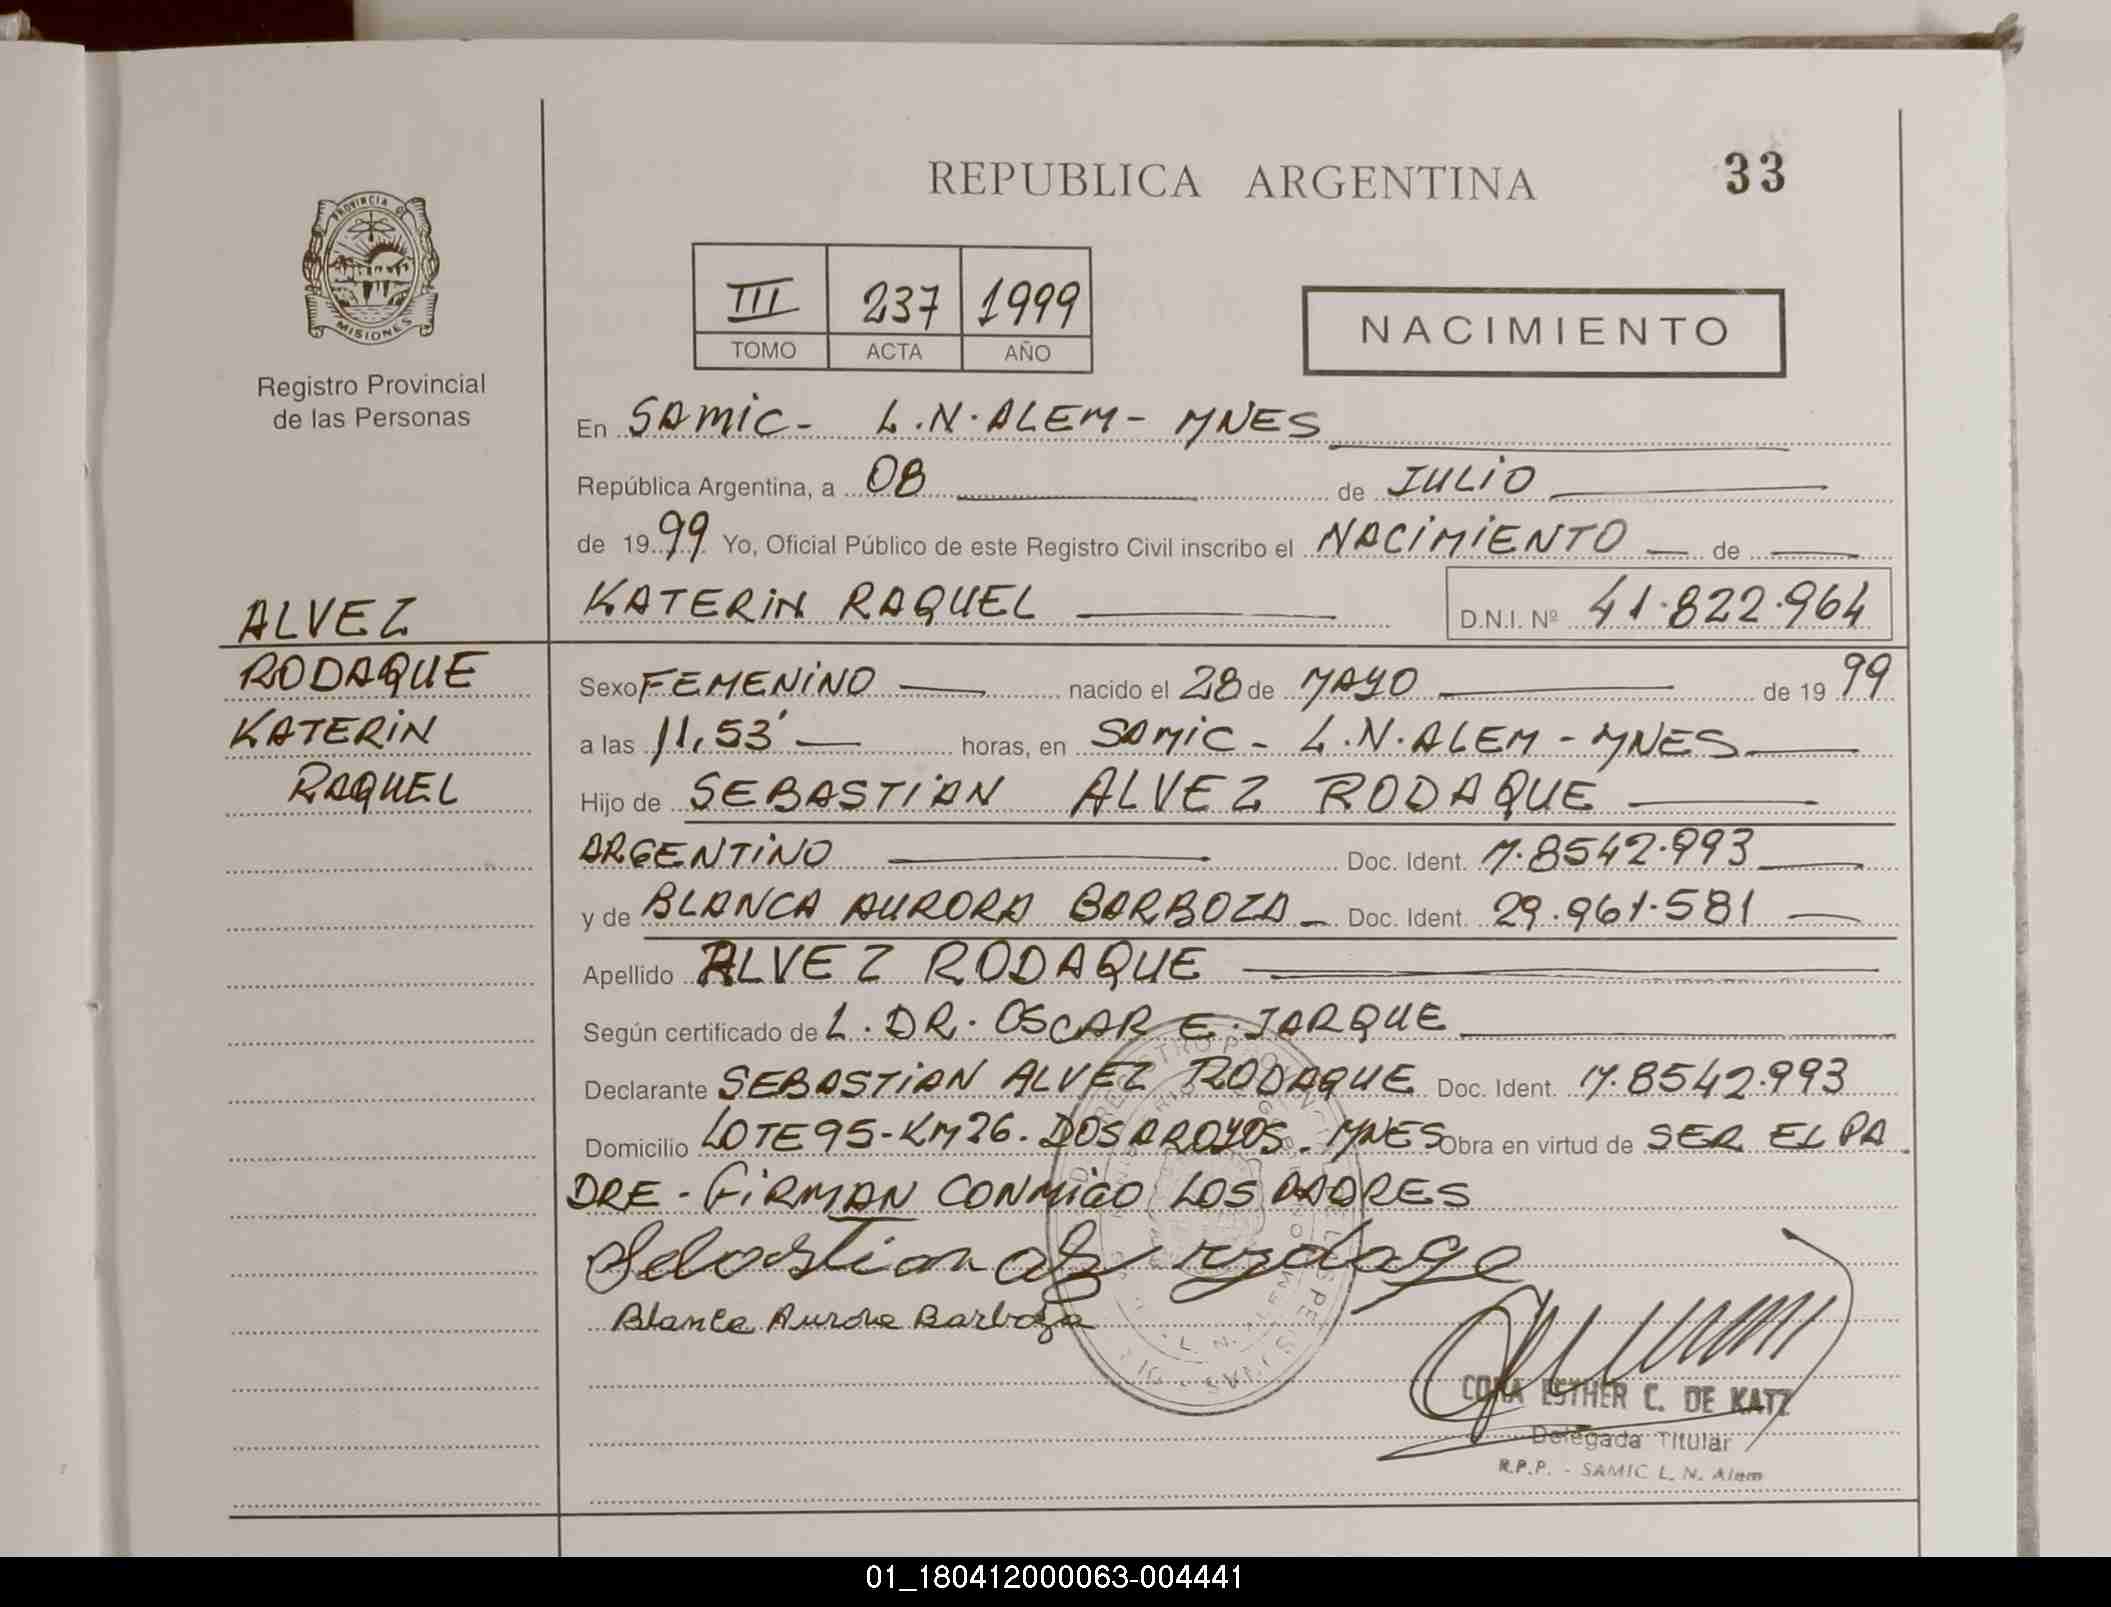 REPUBLICA ARGENTINA
33
PROVINCIA DE
MISIONES
Registro Provincial
de las Personas
III 237 1999
TOMO ACTA AÑO
NACIMIENTO
En SAMIC - L.N. ALEM - MNES
República Argentina, a 08 de JULIO
de 1999 Yo, Oficial Público de este Registro Civil inscribo el NACIMIENTO de
KATERIN RAQUEL D.N.I. Nº 41.822.964
ALVEZ
RODAQUE
KATERIN
RAQUEL
Sexo FEMENINO nacido el 28 de MAYO de 1999
a las 11,53' horas, en SAMIC - L.N. ALEM - MNES
Hijo de SEBASTIAN ALVEZ RODAQUE
ARGENTINO Doc. Ident. 7.8542.993
y de BLANCA AURORA BARBOZA - Doc. Ident. 29.961.581
Apellido ALVEZ RODAQUE
Según certificado de L. DR. OSCAR E. JARQUE
Declarante SEBASTIAN ALVEZ RODAQUE Doc. Ident. 7.8542.993
Domicilio LOTE 95 - KM 26. DOS AROYOS. MNES Obra en virtud de SER EL PA
DRE - FIRMAN CONMIGO LOS PADRES
Blanca Aurora Barboza
L. N. ALEM
CORA ESTHER C. DE KATZ
Delegada Titular
R.P.P. - SAMIC L. N. Alem
01_180412000063-004441